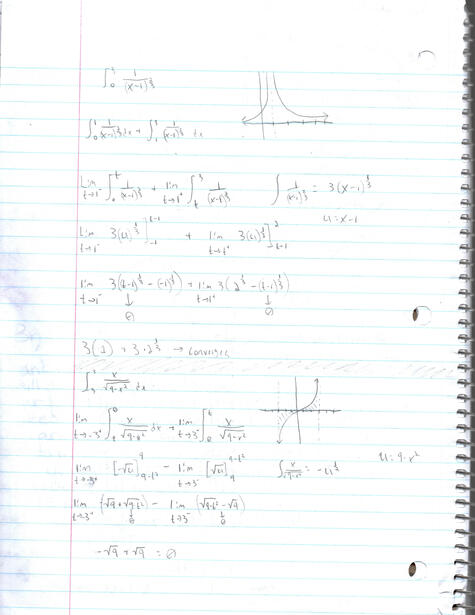 ∫₀³ 1/(x-1)^⅔
∫₀¹ 1/(x-1)^⅔ dx + ∫₁³ 1/(x-1)^⅔ dx
lim t→1⁻ ∫₀ᵗ 1/(x-1)^⅔ + lim t→1⁺ ∫ₜ³ 1/(x-1)^⅔    ∫ 1/(x-1)^⅔ = 3(x-1)^⅓
u=x-1
lim t→1⁻ 3(u)^⅓ ]₋₁^(t-1) + lim t→1⁺ 3(u)^⅓ ]_(t-1)^2
lim t→1⁻ 3((t-1)^⅓ - (-1)^⅓) + lim t→1⁺ 3(2^⅓ - (t-1)^⅓)
↓ ↓
0 0
3(1) + 3·2^⅓ → converges
x/√(9-x²) dx
lim t→-3⁺ ∫ₜ⁰ x/√(9-x²) dx + lim t→3⁻ ∫₀ᵗ x/√(9-x²)
u=9-x²
lim [-√u] 9-t² 9 - lim t→3⁻ [√u] 9 9-t²    ∫ x/√(9-x²) = -u^½
lim - lim t→3⁻ (√(9-t²) - √9)
↓ ↓
0 0
-√9 + √9 = 0